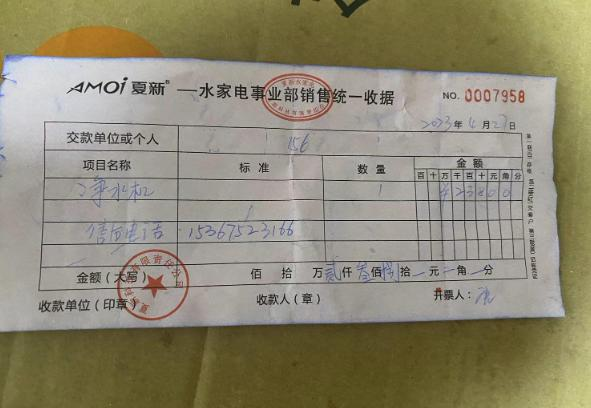 AMOI 夏新® 一水家电事业部销售统一收据 NO. 0007958
2023年4月27日
交款单位或个人 156
项目名称 标准 数量 金额
百十万千百十元角分
净水机 1 ¥23800
售后电话 15367523166
金额(大写) 佰 拾 万 贰仟叁佰捌拾 元 角 分
收款单位(印章) 收款人(章) 开票人: